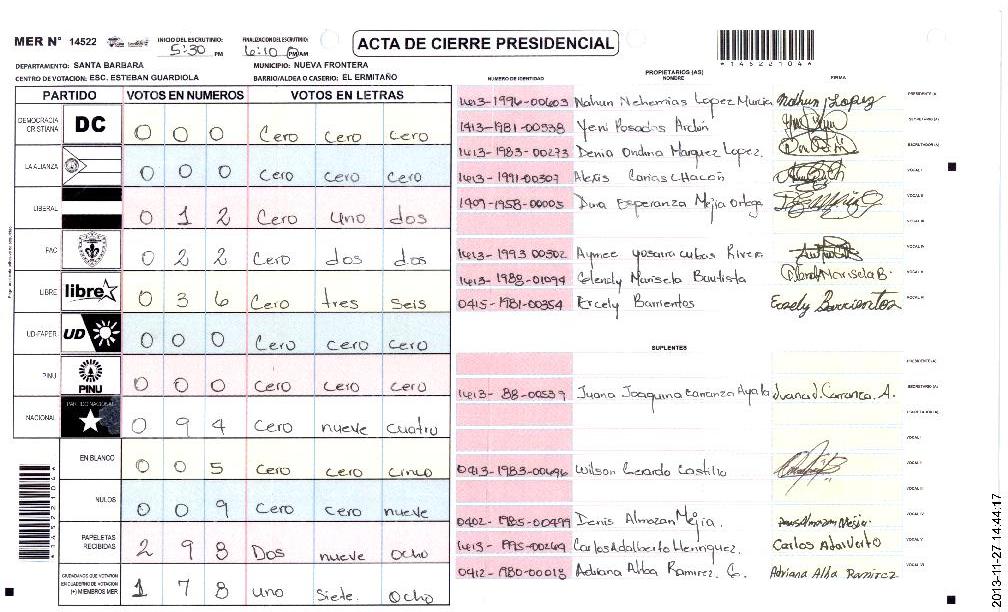 MER N° 14522
INICIO DEL ESCRUTINIO: 5:30 PM
FINALIZACION DEL ESCRUTINIO: 6:10 PM AM
ACTA DE CIERRE PRESIDENCIAL
*14522104*
DEPARTAMENTO: SANTA BARBARA
MUNICIPIO: NUEVA FRONTERA
CENTRO DE VOTACION: ESC. ESTEBAN GUARDIOLA
BARRIO/ALDEA O CASERIO: EL ERMITAÑO
PARTIDO VOTOS EN NUMEROS VOTOS EN LETRAS
DEMOCRACIA CRISTIANA DC 0 0 0 Cero Cero Cero
LA ALIANZA 0 0 0 Cero Cero Cero
LIBERAL 0 1 2 Cero Uno dos
PAC 0 2 2 Cero dos dos
LIBRE libre 0 3 6 Cero tres seis
UD-FAPER UD 0 0 0 Cero Cero Cero
PINU PINU 0 0 0 Cero Cero Cero
NACIONAL PARTIDO NACIONAL 0 9 4 Cero nueve cuatro
EN BLANCO 0 0 5 Cero Cero Cinco
NULOS 0 0 9 Cero Cero nueve
PAPELETAS RECIBIDAS 2 9 8 Dos nueve Ocho
CIUDADANOS QUE VOTARON EN CUADERNO DE VOTACION (+) MIEMBROS MER 1 7 8 uno Siete. Ocho
*14522104*
NUMERO DE IDENTIDAD
PROPIETARIOS (AS)
NOMBRE
FIRMA
1413-1996-00603 Nahun Nehemias Lopez Murcia Nahun Lopez PRESIDENTE (A)
1413-1981-00538 Yeni Posados Ardón SECRETARIO (A)
1413-1983-00273 Denia Ondina Marquez Lopez. ESCRUTADOR (A)
1413-1991-00307 Alexis Canas Chacón VOCAL I
1409-1958-00005 Dina Esperanza Mejia Ortega VOCAL II
VOCAL III
1413-1993 00502 Aymee yosara cubas Rivera VOCAL IV
1413-1988-01094 Glendy Marisela Bautista Glendy Marisela B. VOCAL V
0415-1981-00354 Ercely Barrientos Ercely Barrientos VOCAL VI
SUPLENTES
PRESIDENTE (A)
1413- 88-00539 Juana Joaquina Carranza Ayala Juana J. Carranza. A. SECRETARIO (A)
ESCRUTADOR (A)
VOCAL I
0413-1983-00696 Wilson Gerardo Castillo VOCAL II
VOCAL III
0402-1985-00499 Denis Almazan Mejia. Denis Almazan Mejia. VOCAL IV
1413- 1995-00269 Carlos Adalberto Henriquez. Carlos Adalverto VOCAL V
0412-1980-00015 Adriana Alba Ramirez. G. Adriana Alba Ramirez VOCAL VI
2013-11-27 14:44:17